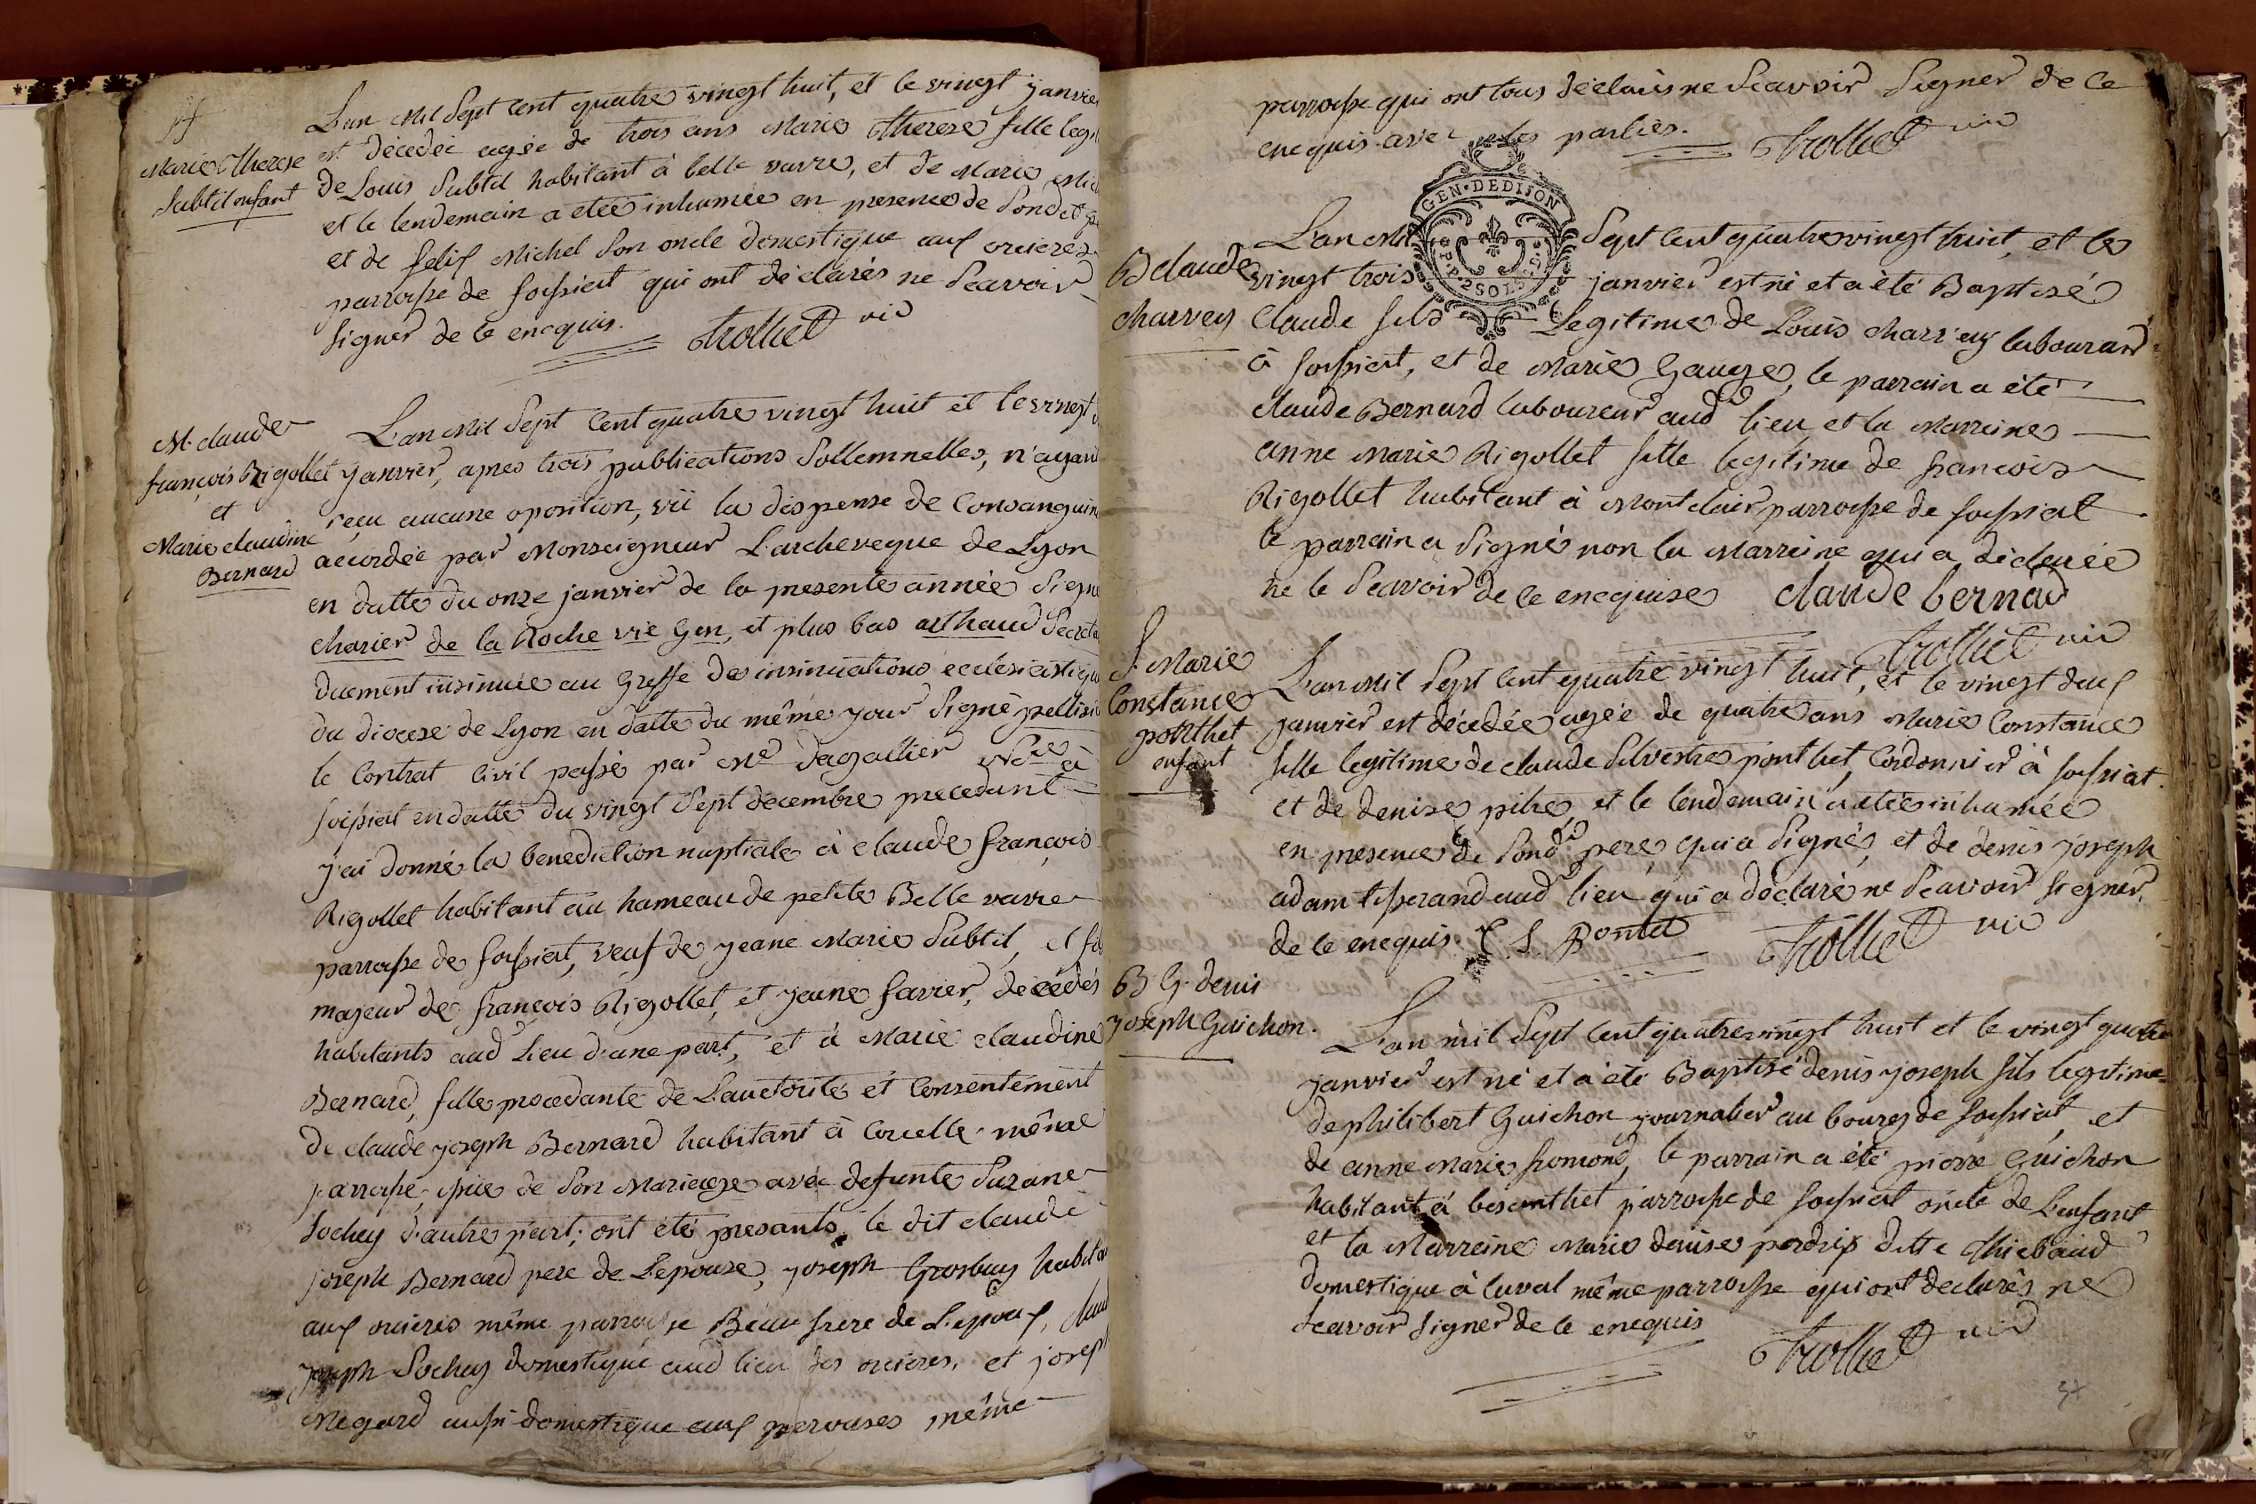 Marie Therese
Subtil enfant
L'an Mil Sept Cent quatre vingt huit, et le vingt janvier
est décedée agée de trois ans Marie Therese fille legit
de Louis Subtil habitant à belle vavre, et de Marie Mic
et le lendemain a eteé inhumée en presence de Sondt
et de felix Michel son oncle domestique aux ovieres
parroisse de soissiat qui ont déclarés ne Scavoir
signer de ce enequis. Trolliet vic
M. claude
françois Rigollet
et
Marie claudine
Bernard
L'an Mil Sept Cent quatre vingt huit et le vingt
janvier, apres trois publications Sollemnelles, n'ayant
reçu aucune oposition, vü la dispense de Consanguin
accordée par Monseigneur L'archeveque de Lyon
en datte du onze janvier de la presente année Signé
charier de la Roche vic Gen, et plus bas arthaud Secret
duement insinuée au Greffe des insinuations ecclésiastiqu
du diocese de Lyon en datte du même jour Signé pellis
le Contrat Civil passé par Me dagallier nore à
soissiat en datte du vingt Sept decembre precedant
j'ai donné la benediction nuptiale à claude françois
Rigollet habitant au hameau de petite Belle vavre
parroisse de soissiat, veuf de jeane Marie Subtil, et fils
majeur de françois Rigollet, et jeane favier, decédés
habitants aud Lieu d'une part, et à Marie claudine
Bernard, fille procedante de L'auctorité et Consentement
de claude joseph Bernard habitant à Corcelle même
parroisse, et de Son Mariage avec defunte Suzane
Sochey d'autre part; ont été presants, le dit claude
joseph Bernard pere de L'epouse, joseph Grosbuy habita
aux ovieres même parroisse Beau frere de L'epoux, claud
joseph Sochey domestique aud lieu des ovieres, et joseph
Megard aussi domestique aux perouses même
parroisse qui ont tous déclarés ne Scavoir Signer de ce
enequis avec les parties. Trolliet vic
GEN·DEDIJON
2SOLS
B claude
charvey
L'an Mil Sept Cent quatre vingt huit, et le
vingt trois janvier est né et a été Baptisé
Claude fils Legitime de Louis charvey laboureur
à soissiat, et de Marie Gauge, le parrain a été
claude Bernard laboureur aud lieu et la Marreine
anne Marie Rigollet fille legitime de françois
Rigollet habitant à Montclair parroisse de soissiat
le parrain a Signé non la Marreine qui a declarée
ne le Scavoir de ce enequise claude bernad
Trolliet vic
S. Marie
Constance
ponthet
enfant
L'an Mil Sept Cent quatre vingt huit, et le vingt deux
janvier est décedée agée de quatre ans Marie Constance
fille legitime de claude Silvestre ponthet, Cordonnier à soissiat
et de denise pitre, et le lendemain a eteé inhumée
en presence de Sond pere, qui a Signé, et de denis joseph
adam tisserand aud lieu qui a déclaré ne Scavoir signer
de ce enequis. C. S. Pontet Trolliet vic
B G. denis
joseph Guichon.
L'an mil Sept Cent quatre vingt huit et le vingt quatre
janvier est né et a été Baptisé denis joseph fils legitime
de philibert Guichon journalier au bourg de soissiat, et
de anne Marie fromond, le parrain a été pierre Guichon
habitant à besenthet parroisse de soissiat oncle de L'enfant
et la Marreine Marie denise perdrix ditte Thiebaud
domestique à laval même parroisse qui ont declarés ne
Scavoir Signer de ce enequis Trolliet vic